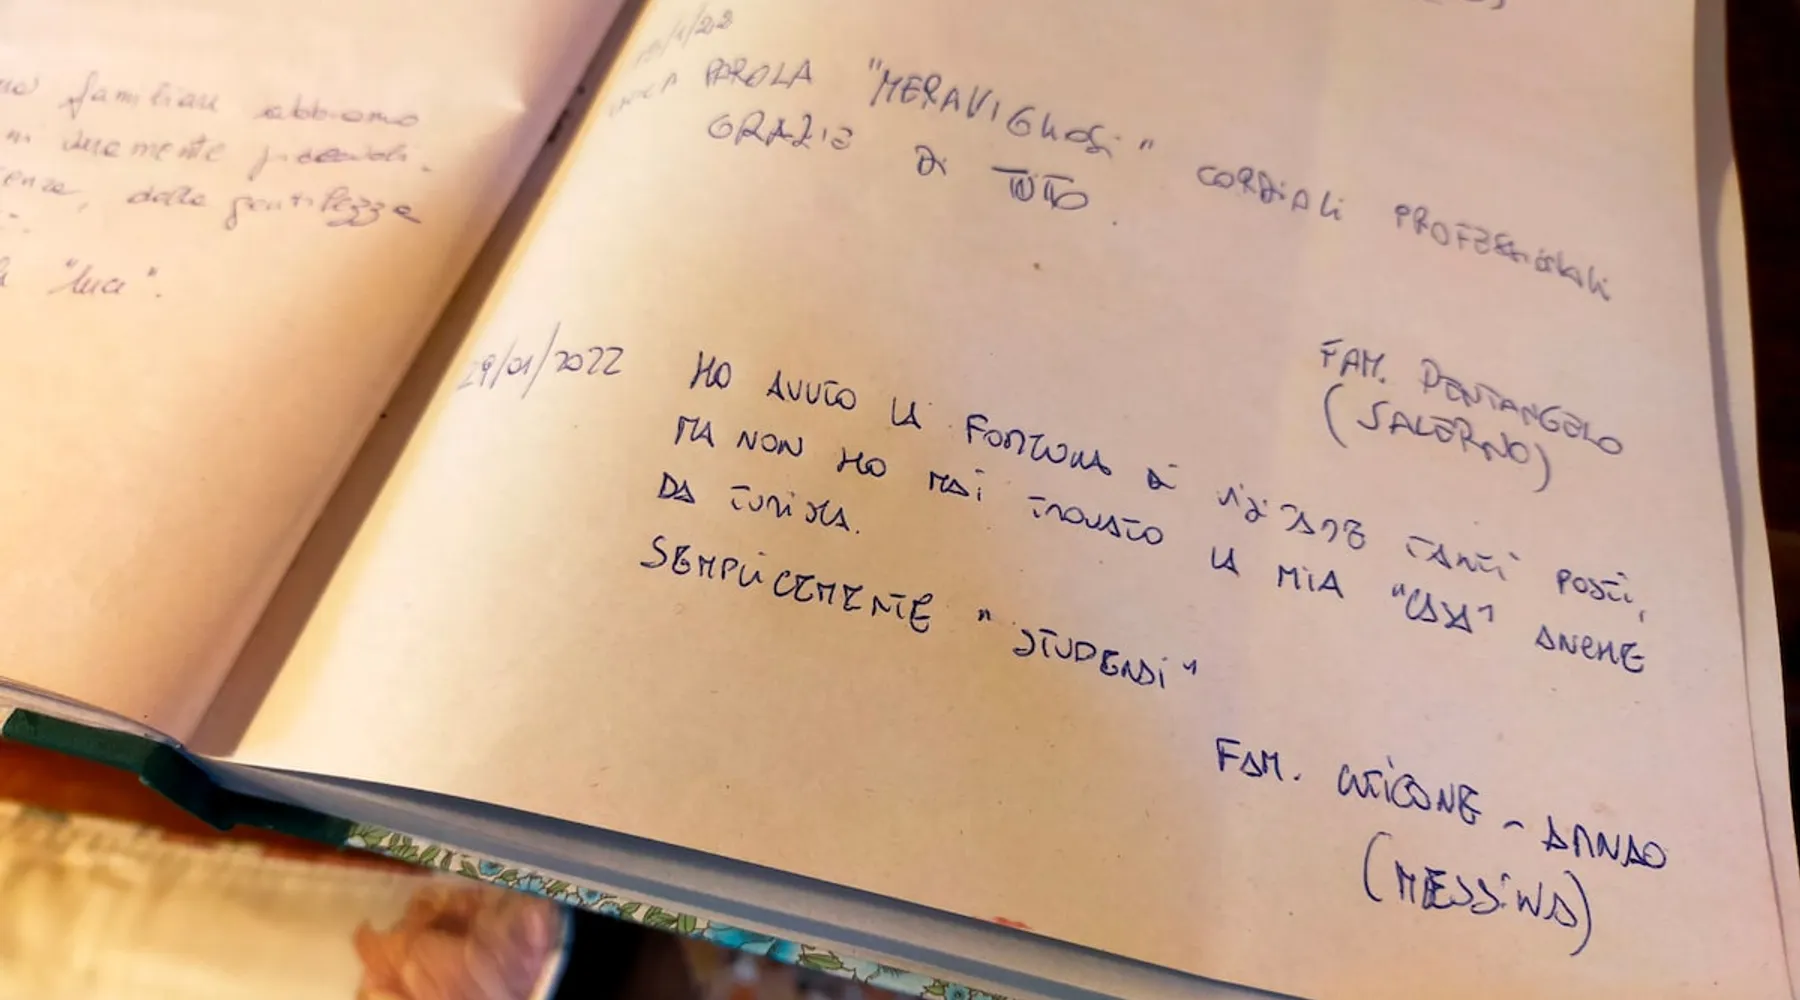 familiare abbiamo
veramente piacevoli.
dalla gentilezza
"luci".
/1/22
PAROLA "MERAVIGLIOSI" CORDIALI PROFESSIONALI
GRAZIE DI TUTTO.
FAM. PENTANGELO
(SALERNO)
29/01/2022 HO AVUTO LA FORTUNA DI VISITARE TANTI POSTI,
MA NON HO MAI TROVATO LA MIA "CASA" ANCHE
DA TURISTA.
SEMPLICEMENTE "STUPENDI"
FAM. - ARNAO
(MESSINA)